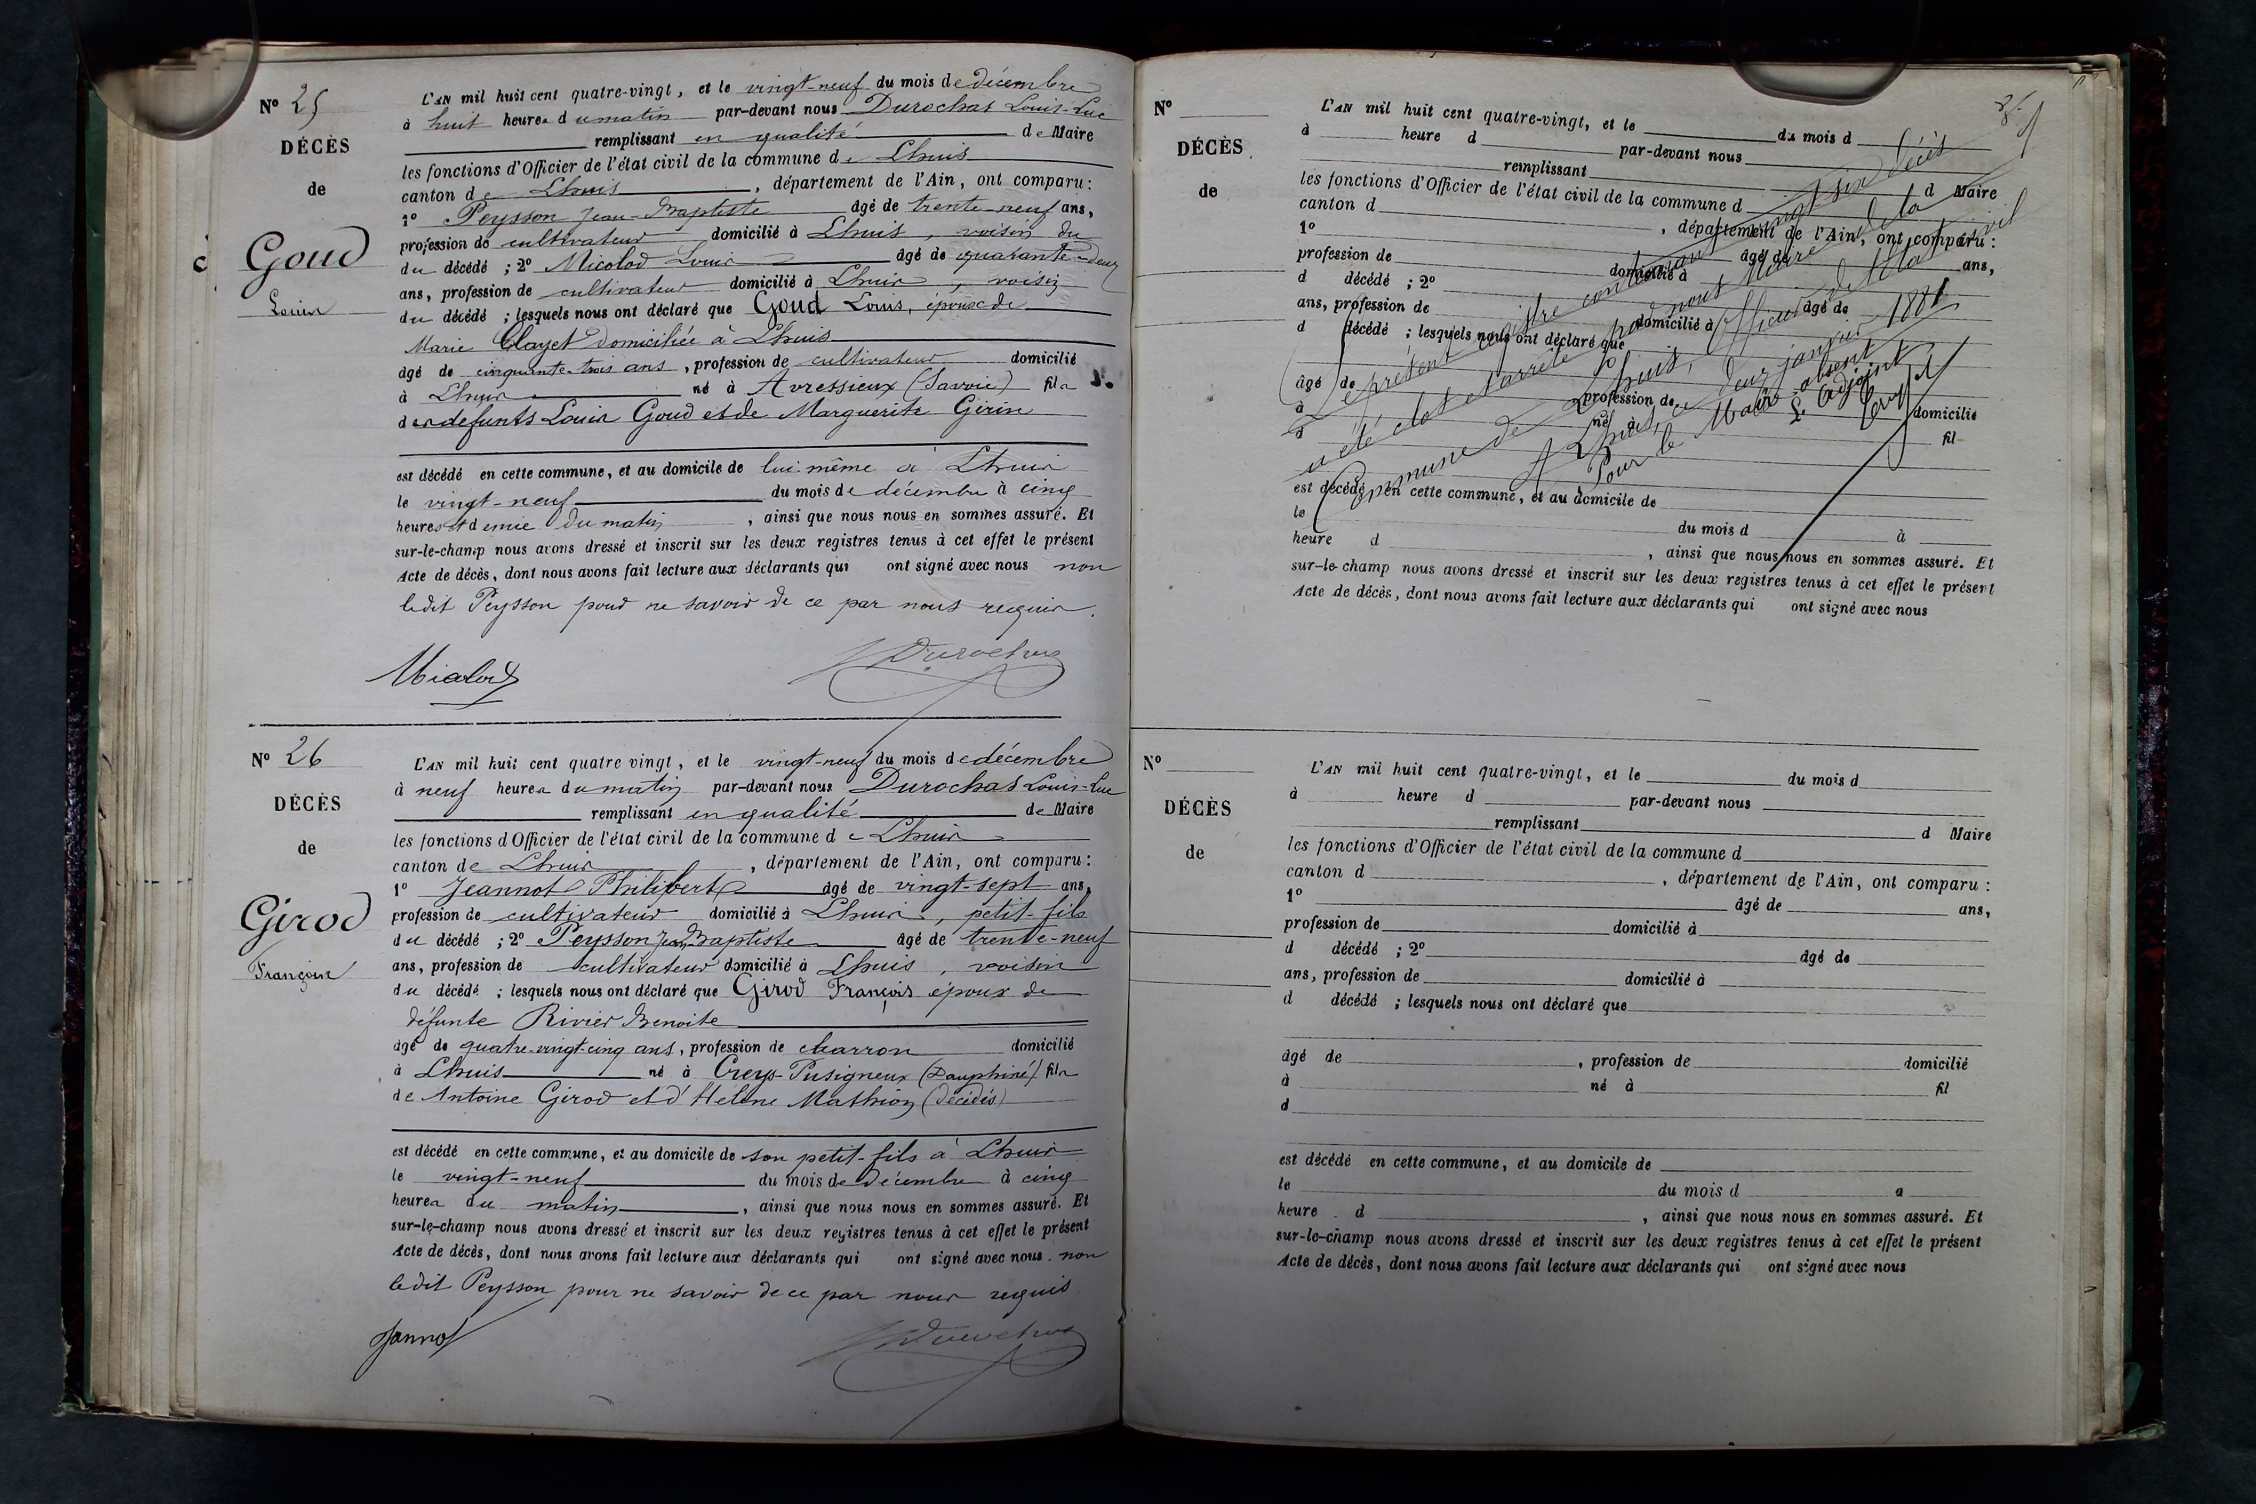 Nº 25
DÉCÈS
de
Goud
Louis
L'AN mil huit cent quatre-vingt, et le vingt-neuf du mois de décembre
à huit heures du matin par-devant nous Durochat Louis-Luc
remplissant en qualité de Maire
les fonctions d'Officier de l'état civil de la commune de Lhuis
canton de Lhuis, département de l'Ain, ont comparu :
1º Peysson Jean-Baptiste âgé de trente-neuf ans,
profession de cultivateur domicilié à Lhuis, voisin du
du décédé ; 2º Micolod Louis âgé de quarante-deux
ans, profession de cultivateur domicilié à Lhuis, voisin
du décédé ; lesquels nous ont déclaré que Goud Louis, époux de
Marie Clayet domiciliée à Lhuis
âgé de cinquante-trois ans, profession de cultivateur domicilié
à Lhuis né à Avressieux (Savoie) fils
des defunts Louis Goud et de Marguerite Girin
est décédé en cette commune, et au domicile de lui-même à Lhuis
le vingt-neuf du mois de décembre à cinq
heures et demie du matin, ainsi que nous nous en sommes assuré. Et
sur-le-champ nous avons dressé et inscrit sur les deux registres tenus à cet effet le présent
Acte de décès, dont nous avons fait lecture aux déclarants qui ont signé avec nous non
ledit Peysson pour ne savoir de ce par nous requis.
Micolod Durochat
Nº 26
DÉCÈS
de
Girod
François
L'AN mil huit cent quatre vingt, et le vingt-neuf du mois de décembre
à neuf heures du matin par-devant nous Durochat Louis-Luc
remplissant en qualité de Maire
les fonctions d'Officier de l'état civil de la commune de Lhuis
canton de Lhuis, département de l'Ain, ont comparu :
1º Jeannot Philibert âgé de vingt-sept ans,
profession de cultivateur domicilié à Lhuis, petit-fils
du décédé ; 2º Peysson Jean Baptiste âgé de trente-neuf
ans, profession de cultivateur domicilié à Lhuis, voisin
du décédé ; lesquels nous ont déclaré que Girod François époux de
défunte Rivier Benoite
âgé de quatre-vingt-cinq ans, profession de charron domicilié
à Lhuis né à Creys-Pusigneux (Dauphiné) fils
de Antoine Girod et d'Helène Mathion (décédés)
est décédé en cette commune, et au domicile de son petit-fils à Lhuis
le vingt-neuf du mois de décembre à cinq
heures du matin, ainsi que nous nous en sommes assuré. Et
sur-le-champ nous avons dressé et inscrit sur les deux registres tenus à cet effet le présent
Acte de décès, dont nous avons fait lecture aux déclarants qui ont signé avec nous. non
ledit Peysson pour ne savoir de ce par nous requis
Jannot Durochat
Nº
DÉCÈS
de
L'AN mil huit cent quatre-vingt, et le du mois d
à heure d par-devant nous
remplissant d Maire
les fonctions d'Officier de l'état civil de la commune d
canton d , département de l'Ain, ont comparu :
1º âgé de ans,
profession de domicilié à
d décédé ; 2º âgé de
ans, profession de domicilié à
d décédé ; lesquels nous ont déclaré que
âgé de profession de domicilié
à né à fil
d
est décédé en cette commune, et au domicile de
le du mois d à
heure d , ainsi que nous nous en sommes assuré. Et
sur-le-champ nous avons dressé et inscrit sur les deux registres tenus à cet effet le présent
Acte de décès, dont nous avons fait lecture aux déclarants qui ont signé avec nous
Le présent registre contenant vingt six décès
a été clos et arrêté par nous Maire de la
Commune de Lhuis, Officier de l'état civil
A Lhuis, ce deux janvier 1881
Pour le Maire absent
L'Adjoint
Nº
DÉCÈS
de
L'AN mil huit cent quatre-vingt, et le du mois d
à heure d par-devant nous
remplissant d Maire
les fonctions d'Officier de l'état civil de la commune d
canton d , département de l'Ain, ont comparu :
1º âgé de ans,
profession de domicilié à
d décédé ; 2º âgé de
ans, profession de domicilié à
d décédé ; lesquels nous ont déclaré que
âgé de , profession de domicilié
à né à fil
d
est décédé en cette commune, et au domicile de
le du mois d à
heure d , ainsi que nous nous en sommes assuré. Et
sur-le-champ nous avons dressé et inscrit sur les deux registres tenus à cet effet le présent
Acte de décès, dont nous avons fait lecture aux déclarants qui ont signé avec nous